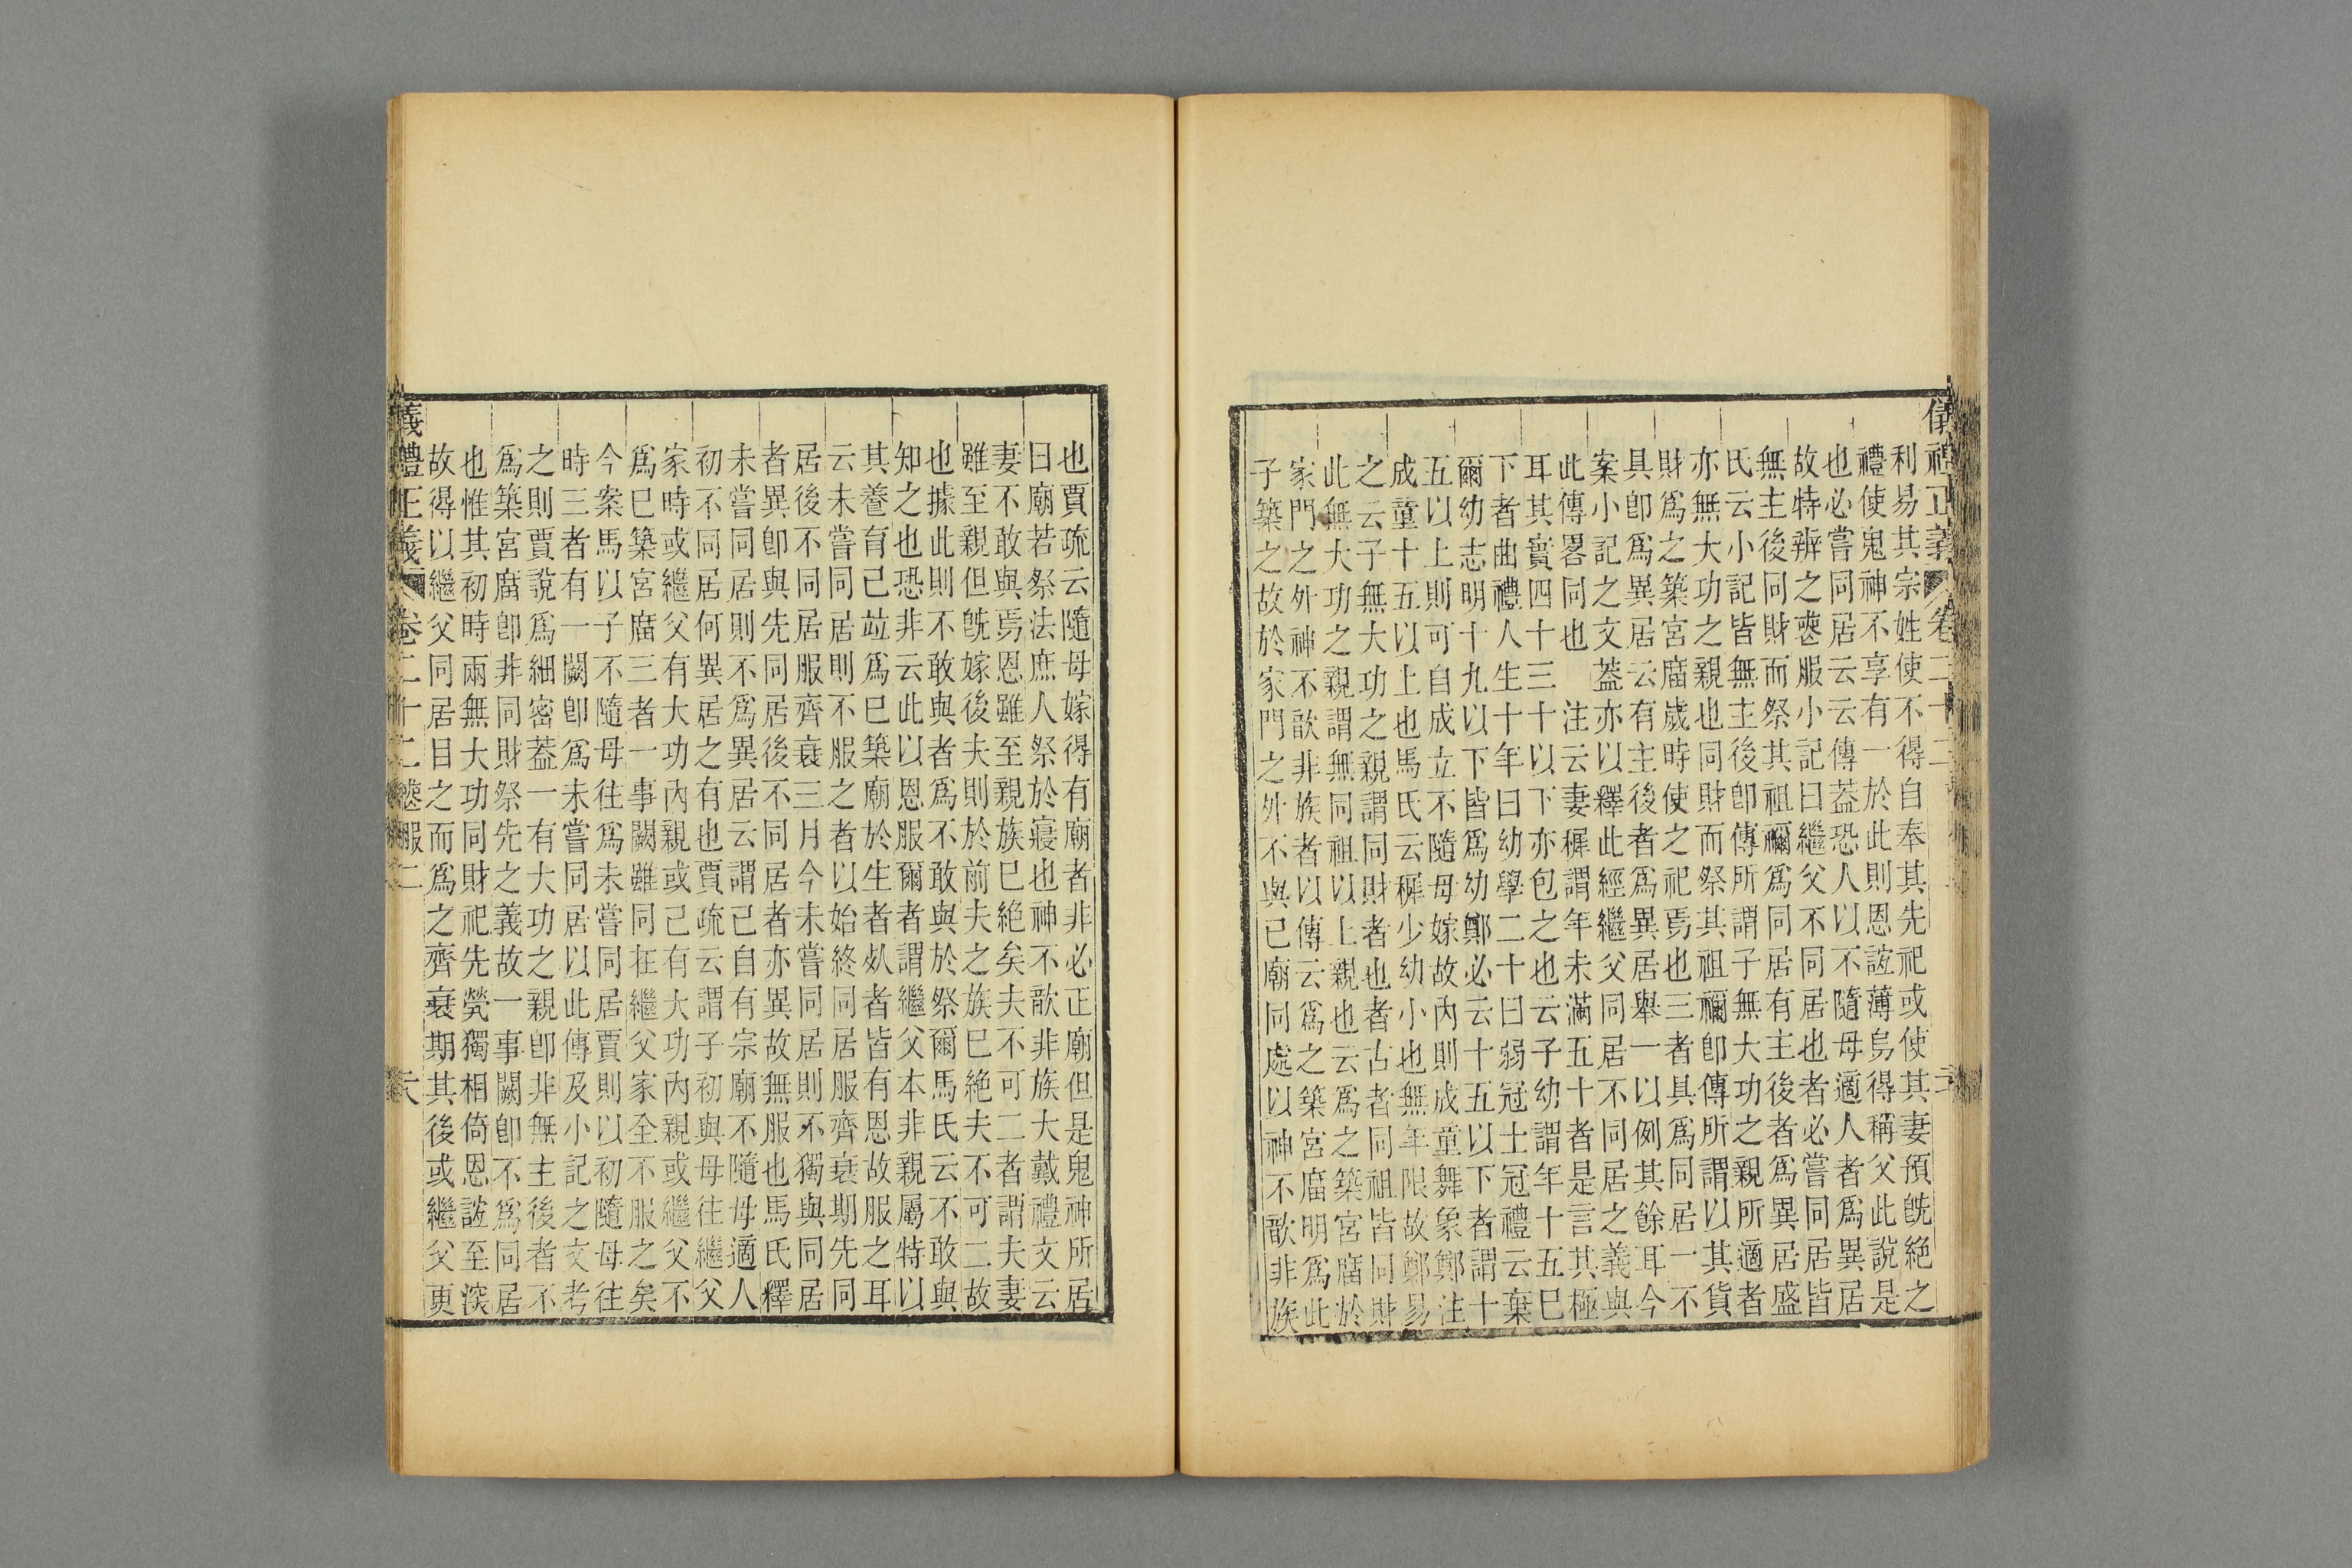 儀禮正義 卷二十二
利易其宗姓使不得自奉其先祀或使其妻預旣絕之
禮使鬼神不享有一於此則恩誼薄烏得稱父此說是
也必嘗同居云云傳葢恐人以不隨母適人者爲異居
故特辨之䘮服小記曰繼父不同居也者必嘗同居皆
無主後同財而祭其祖禰爲同居有主後者爲異居盛
氏云小記皆無主後卽傳所謂子無大功之親所適者
亦無大功之親也同財而祭其祖禰卽傳所謂以其貨
財爲之築宮庿歲時使之祀焉也三者具爲同居一不
具卽爲異居云有主後者爲異居舉一以例其餘耳今
案小記之文葢亦以釋此經繼父同居不同居之義與
此傳畧同也 注云妻穉謂年未滿五十者是言其極
耳其實四十三十以下亦包之也云子幼謂年十五巳
下者曲禮人生十年曰幼學二十曰弱冠士冠禮云棄
爾幼志明十九以下皆爲幼鄭必云十五以下者謂十
五以上則可自成立不隨母嫁故內則成童舞象鄭注
成童十五以上也馬氏云穉少幼小也無年限故鄭易
之云子無大功之親謂同財者也者古者同祖皆同財
此無大功之親謂無同祖以上親也云爲之築宮庿於
家門之外神不歆非族者以傳云爲之築宮庿明爲此
子築之故於家門之外不與已廟同處以神不歆非族
也賈疏云隨母嫁得有廟者非必正廟但是鬼神所居
曰廟若祭法庶人祭於寢也神不歆非族大戴禮文云
妻不敢與焉恩雖至親族巳絕矣夫不可二者謂夫妻
雖至親但旣嫁後夫則於前夫之族巳絕夫不可二故
也據此則不敢與者爲不敢與於祭爾馬氏云不敢與
知之也恐非云此以恩服爾者謂繼父本非親屬特以
其養育己竝爲巳築廟於生者㱕者皆有恩故服之耳
云未嘗同居則不服之者以始終同居服齊衰期先同
居後不同居服齊衰三月今未嘗同居則不獨與同居
者異卽與先同居後不同居者亦異故無服也馬氏釋
未嘗同居則不爲異居云謂己自有宗廟不隨母適人
初不同居何異居之有也賈疏云謂子初與母往繼父
家時或繼父有大功內親或己有大功內親或繼父不
爲巳築宮庿三者一事闕雖同在繼父家全不服之矣
今案馬以子不隨母往爲未嘗同居賈則以初隨母往
時三者有一闕卽爲未嘗同居以此傳及小記之文考
之則賈說爲細密葢一有大功之親卽非無主後者不
爲築宮庿卽非同財祭先之義故一事闕卽不爲同居
也惟其初時兩無大功同財祀先煢獨相倚恩誼至深
故得以繼父同居目之而爲之齊衰期其後或繼父更
儀禮正義 卷二十二 䘮服二 六